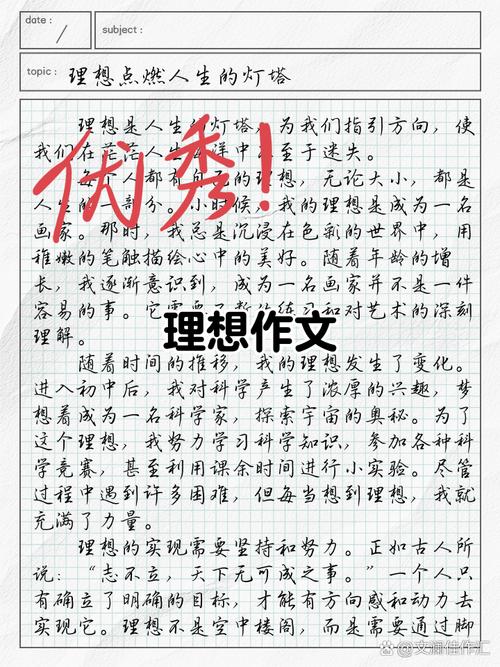 date:
/
subject:
topic: 理想点燃人生的灯塔
理想是人生的灯塔，为我们指引方向，使
我们在茫茫人生洋中至于迷失。
优秀！
每个人都有的理想，无论大小，都是
人生的一部分。小时候，我的理想是成为一名
画家。那时，我总是沉浸在色彩的世界中，用
稚嫩的笔触描绘心中的美好。随着年龄的增
长，我逐渐意识到，成为一名画家并不是一件
容易的事。它需要练习和对艺术的深刻
理想作文
理解。
随着时间的推移，我的理想发生了变化。
进入初中后，我对科学产生了浓厚的兴趣，梦
想着成为一名科学家，探索宇宙的奥秘。为了
这个理想，我努力学习科学知识，参加各种科
学竞赛，甚至利用课余时间进行小实验。尽管
过程中遇到许多困难，但每当想到理想，我就
充满了力量。
理想的实现需要坚持和努力。正如古人所
说：“志不立，天下无可成之事。”一个人只
有确立了明确的目标，才能有方向感和动力去
实现它。理想不是空中楼阁，而是需要通过脚
@文澜佳作汇